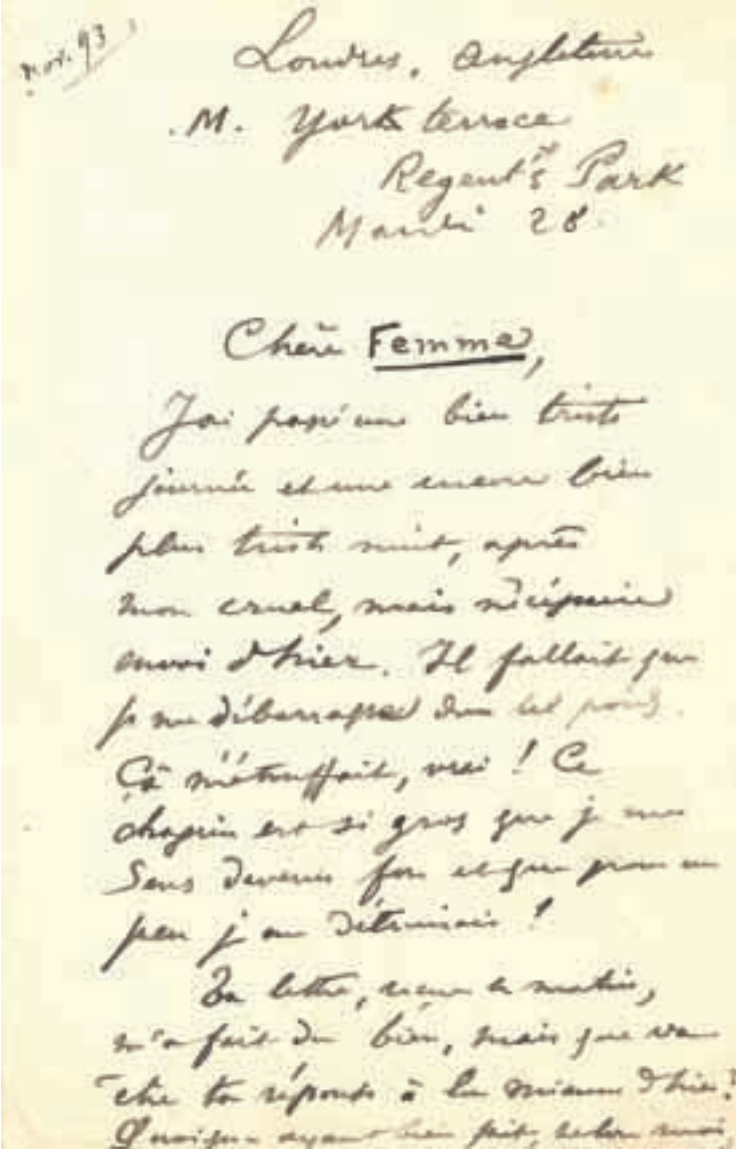 nov. 93
Londres, Angleterre
M. York terrace
Regent's Park
Mardi 28.
Chère Femme,
J'ai passé une bien triste
journée et une encore bien
plus triste nuit, après
mon cruel, mais nécessaire
envoi d'hier. Il fallait que
je me débarrasse d'un tel poids.
Çà m'étouffait, vrai ! Ce
chagrin est si gros que je me
sens devenir fou et que pour un
peu j'en
Ta lettre, reçue ce matin,
m'a fait du bien, mais que va
être ta réponse à la mienne d'hier?
Quoique ayant bien fait, selon moi,